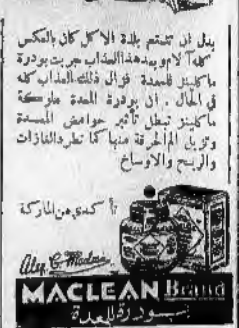 بدل ان تتمتع بلذة الاكل كان بالعكس
كله آلام وبعد هذا العذاب جربت بودرة
ماكلينز للمعدة فزال ذلك العذاب كله
في الحال . ان بودرة المعدة ماركة
ماكلينز تبطل تأثير حوامض المعدة
وتزيل الم الحرقة منها كما تطرد الغازات
والريح والاوساخ
تأكدي من الماركة
Alex C Maclean
MACLEAN Brand
بودرة للمعدة